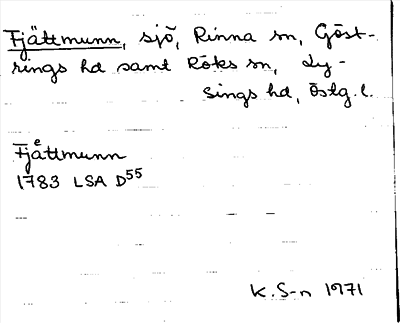 Fjättmunn, sjö, Rinna sn, Göst-
rings hd samt Röks sn, Ly-
sings hd, Östg. l.
Fjåttmunn
1783 LSA D55
K. S-n 1971